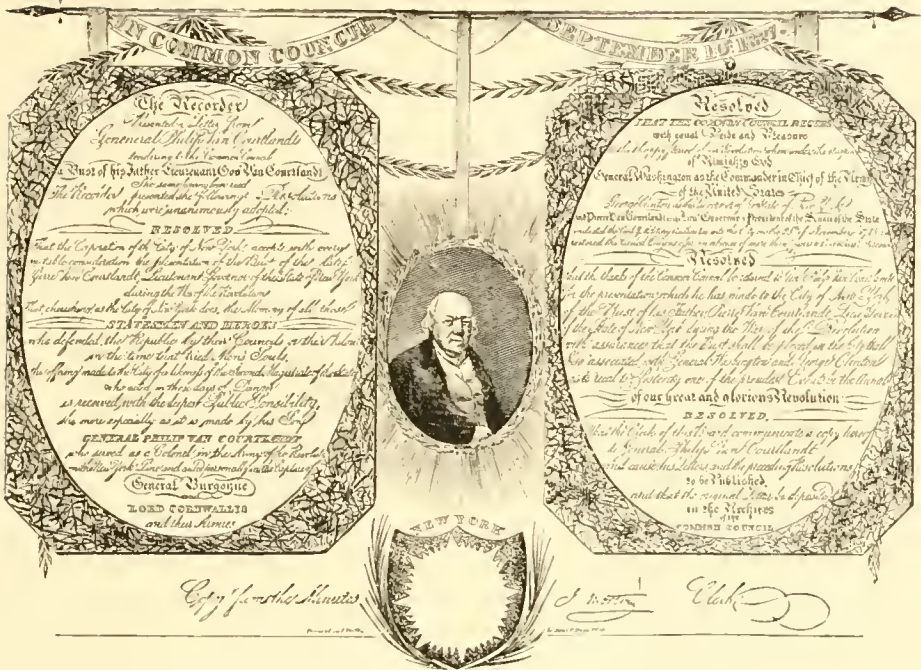 IN COMMON COUNCIL,
SEPTEMBER 10, 1827.
The Recorder
Presented a Letter from
Geneneral Philip Van Courtlandt
tendering to the Common Council
a Bust of his Father Lieutenant Gov Van Courtlandt
The same having been read
The Recorder presented the following Resolutions
which were unanimously adopted:
RESOLVED
That the Corporation of the City of New York accepts with every
consideration the presentation of the Bust of the late
Pierre Van Courtlandt, Lieutenant Governor of the State of New York
during the War of the Revolution
That cherished as the City of New York does, the Memory of all those
STATESMEN AND HEROES
who defended the Republic by their Councils or their Valour
in the time that tried Men's Souls,
the offering made to the City of a likeness of the Second Magistrate of the State
who acted in those days of Danger
is received with the deepest Public Sensibility,
the more especially as it is made by his Son
GENERAL PHILIP VAN COURTLANDT
who served as a Colonel in the Army of the Revolution
with the New York Line and assisted personally in the Capture of
General Burgoyne
LORD CORNWALLIS
and their Armies
Resolved
THAT THE COMMON COUNCIL
with equal Pride and Pleasure
the happy of our Revolution when under the
of Almighty God
General Washington as the Commander in Chief of the Army
of the United States
George Clinton as the Governor of the State of New York
and Pierre Van Courtlandt as Lieut Governor & President of the Senate of the State
the City on the 25th of November 1783
Resolved
that the thanks of the Common Council be returned to Gen Philip Van Courtlandt
for the presentation which he has made to the City of New York
of the Bust of his Father, Pierre Van Courtlandt, Lieut Governor
of the State of New York during the War of the Revolution
with assurances that the Bust shall be placed in the City Hall
associated with General Washington and George Clinton
as to recal to Posterity one of the proudest Events in the Annals
of our Great and glorious Revolution
RESOLVED.
That the Clerk of this Board communicate a copy hereof
to General Philip Van Courtlandt
and cause his Letter, and the preceding Resolutions
to be Published,
and that the original Letter be deposited
in the Archives
of the
COMMON COUNCIL
NEW YORK
Copy from the Minutes
J Morton
Clerk